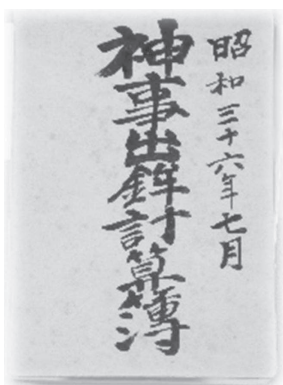 昭和三十六年七月
神事出鉾計算簿